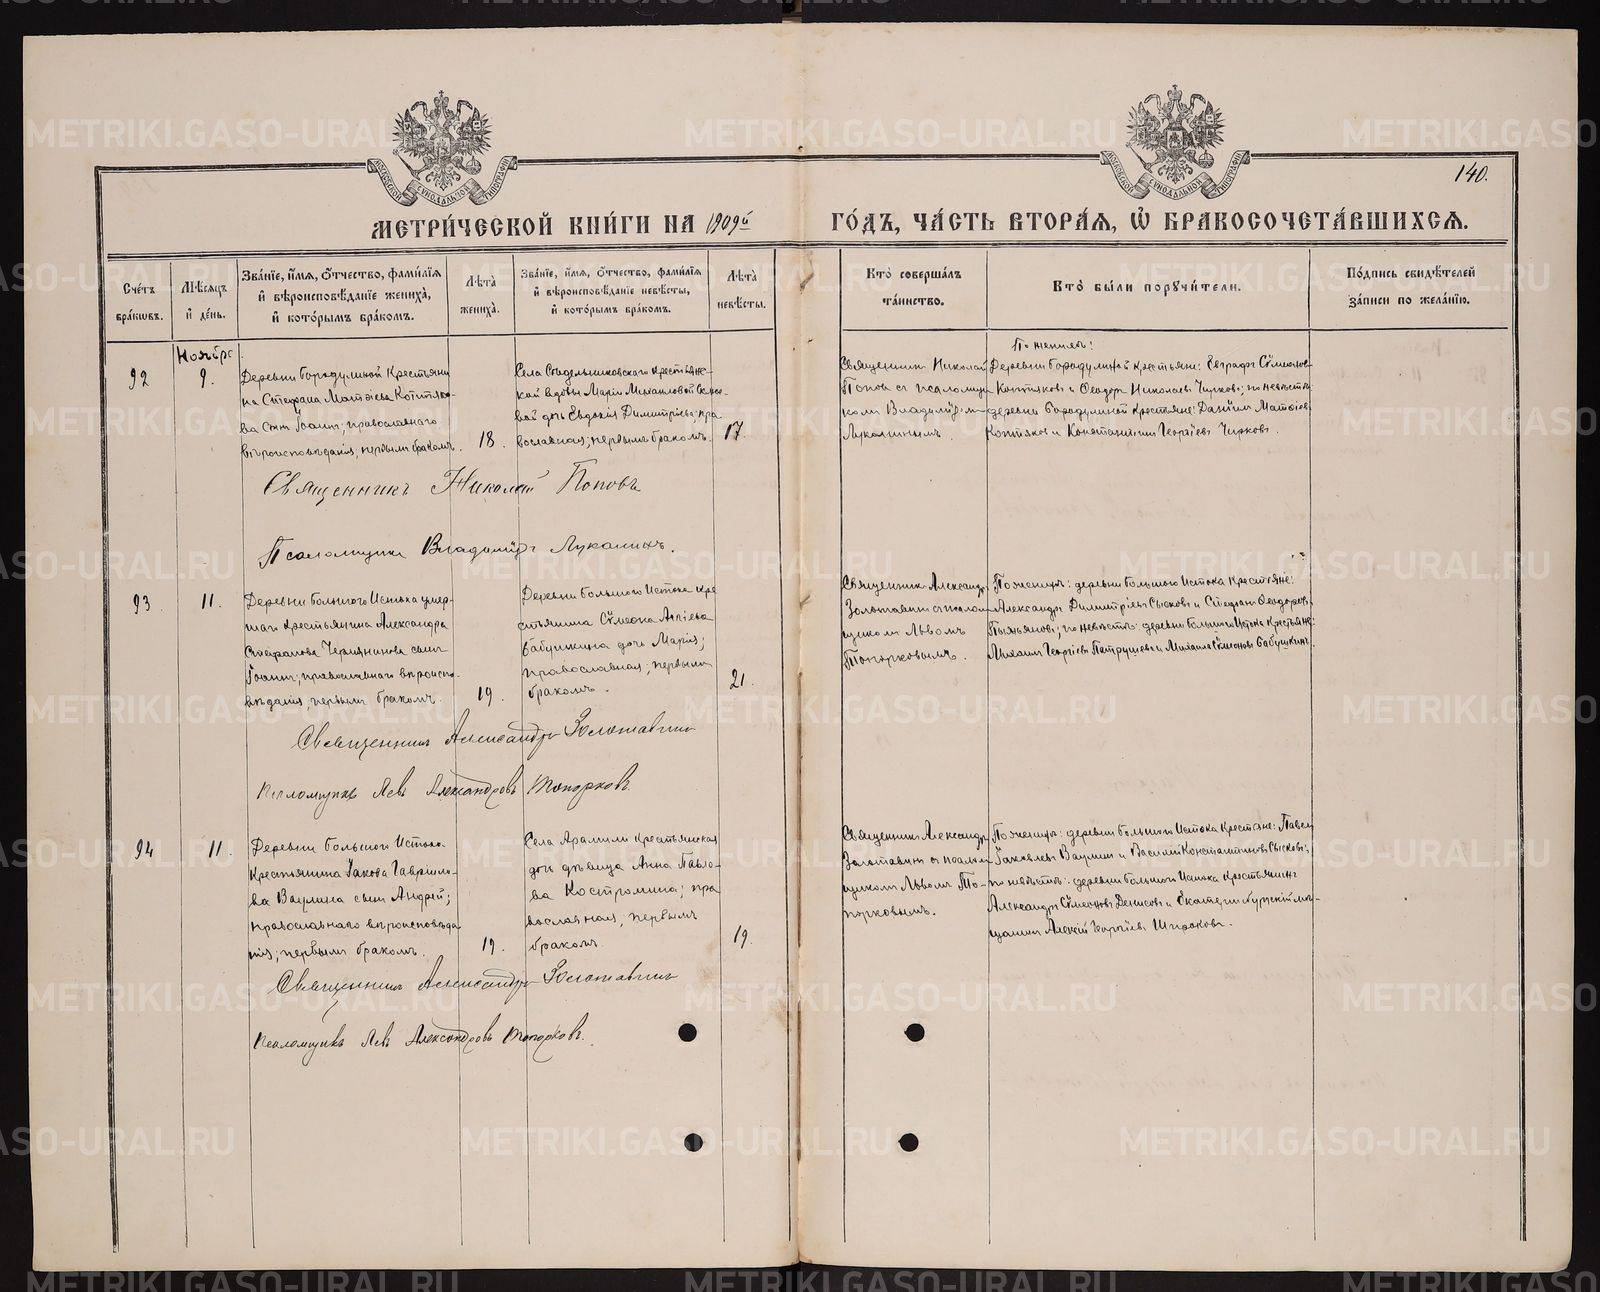 МЕТРИ́ЧЕСКОЙ КНИ́ГИ НА 1909й ГО́ДЪ, ЧА́СТЬ ВТОРА́Я, Ѿ БРАКОСОЧЕТА́ВШИХСЯ.
140.
Сче́тъ бра́кѡвъ.
Мѣ́сяцъ и҆ де́нь.
Зва́нїе, и҆́мѧ, ѻ҆́тчество, фами́лїѧ и҆ вѣроисповѣ́данїе жениха̀, и҆ кото́рымъ бра́комъ.
Лѣ́та жениха̀.
Зва́нїе, и҆́мѧ, ѻ҆́тчество, фами́лїѧ и҆ вѣроисповѣ́данїе невѣ́сты, и҆ кото́рымъ бра́комъ.
Лѣ́та невѣ́сты.
Кто̀ соверша́лъ та́инство.
Кто̀ бы́ли порꙋчи́тели.
По́дпись свидѣ́телей за́писи по жела́нїю.
Ноябрь
92
9.
Деревни Бородулиной Крестьяни
на Стефана Матѳіева Котяко-
ва сын Іоанн; православнаго
вѣроисповѣданія, первымъ бракомъ.
18.
Села крестьянс-
кой вдовы Маріи Михаиловой
дочь Евдокія Димитріева; пра
вославная; первымъ бракомъ.
17.
Священник Николай
Попов с псаломщи
ком Владиміром
Луканинымъ.
По женихѣ:
Деревни Бородулиной крестьяне: Евграфъ Сѵмеонов
Котяковъ и Ѳеодоръ Николаевъ Чирковъ; по невѣстѣ
деревни Бородулиной крестьяне: Даніилъ Матѳіевъ
Котяковъ и Константинъ Георгіевъ Чирковъ.
Священникъ Николай Поповъ
Псаломщикъ Владиміръ Луканинъ.
93
11.
Деревни Большого Истока умер-
шаго Крестьянина Александра
Стефанова Чермянинова сынъ
Іоаннъ; православнаго вѣроиспо-
вѣданія, первымъ бракомъ.
19.
Деревни Большого Истока кре
стьянина Сѵмеона
Бабушкина дочь Марія;
православная; первымъ
бракомъ.
21.
Священник Александръ
Золотавинъ с псалом
щиком Львомъ
Топорковымъ.
По женихѣ: деревни Большого Истока Крестьяне:
Александръ Димитріевъ Сысковъ и Стефанъ Ѳеодоровъ
Пьянковъ; по невѣстѣ: деревни Большого Истока Крестьяне:
Михаилъ Георгіевъ Патрушевъ и Михаилъ Сѵмеоновъ Бабушкинъ.
Священникъ Александръ Золотавинъ
Псаломщикъ Левъ Александровъ Топорковъ.
94
11.
Деревни Большого Истока
Крестьянина Іакова Гаврило-
ва Ваулина сынъ Андрей;
православнаго вѣроисповѣда
нія; первымъ бракомъ.
19.
Села Арамили крестьянская
дочь дѣвица Анна Павло-
ва Костромина; пра
вославная, первымъ
бракомъ.
19.
Священникъ Александръ
Золотавинъ съ псалом
щикомъ Львомъ То-
порковымъ.
По женихѣ: деревни Большого Истока Крестьяне: Павелъ
Іаковлевъ Ваулинъ и Василій Константиновъ Сысковъ;
по невѣстѣ: деревни Большого Истока крестьянинъ
Александръ Сѵмеоновъ Денисовъ и Екатеринбургскій мѣ-
щанинъ Алексій Георгіевъ Широковъ.
Священникъ Александръ Золотавинъ
Псаломщикъ Левъ Александровъ Топорковъ.
METRIKI.GASO-URAL.RU